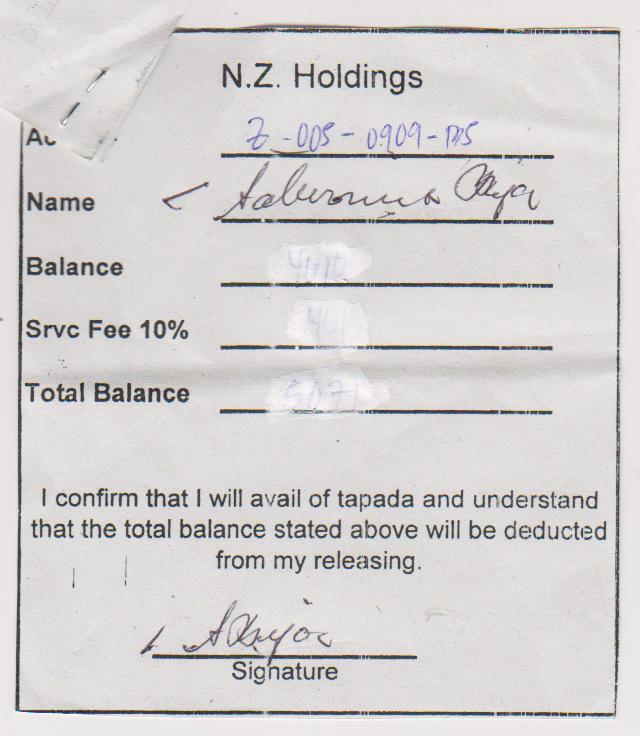 N.Z. Holdings
Z-005-0909-
Name
Balance 4610
Srvc Fee 10% 461
Total Balance 5071
I confirm that I will avail of tapada and understand
that the total balance stated above will be deducted
from my releasing.
Signature